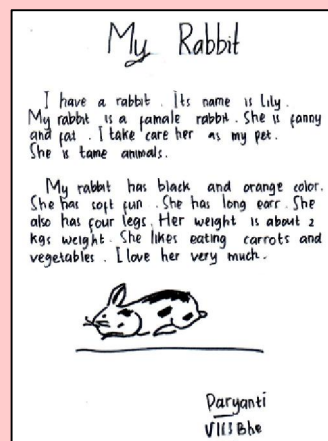 My Rabbit
I have a rabbit . Its name is Lily.
My rabbit is a famale rabbit. She is fanny
and fat . I take care her as my pet.
She is tame animals.
My rabbit has black and orange color.
She has soft fun . She has long earr. She
also has four legs. Her weight is about 2
kgs weight. She likes eating carrots and
vegetables . I love her very much.
Paryanti